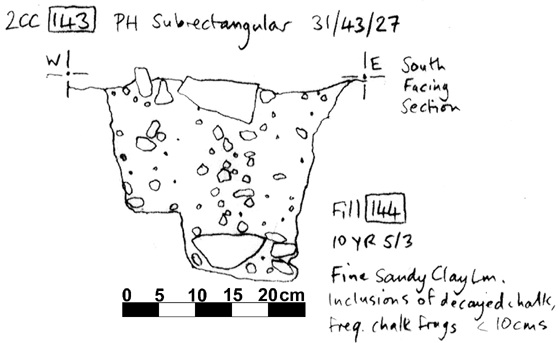 2CC 143 PH Subrectangular 31/43/27
W E
South
Facing
Section
Fill 144
10 YR 5/3
Fine Sandy Clay Lm.
Inclusions of decayed chalk,
freq. chalk frags < 10cms
0 5 10 15 20cm